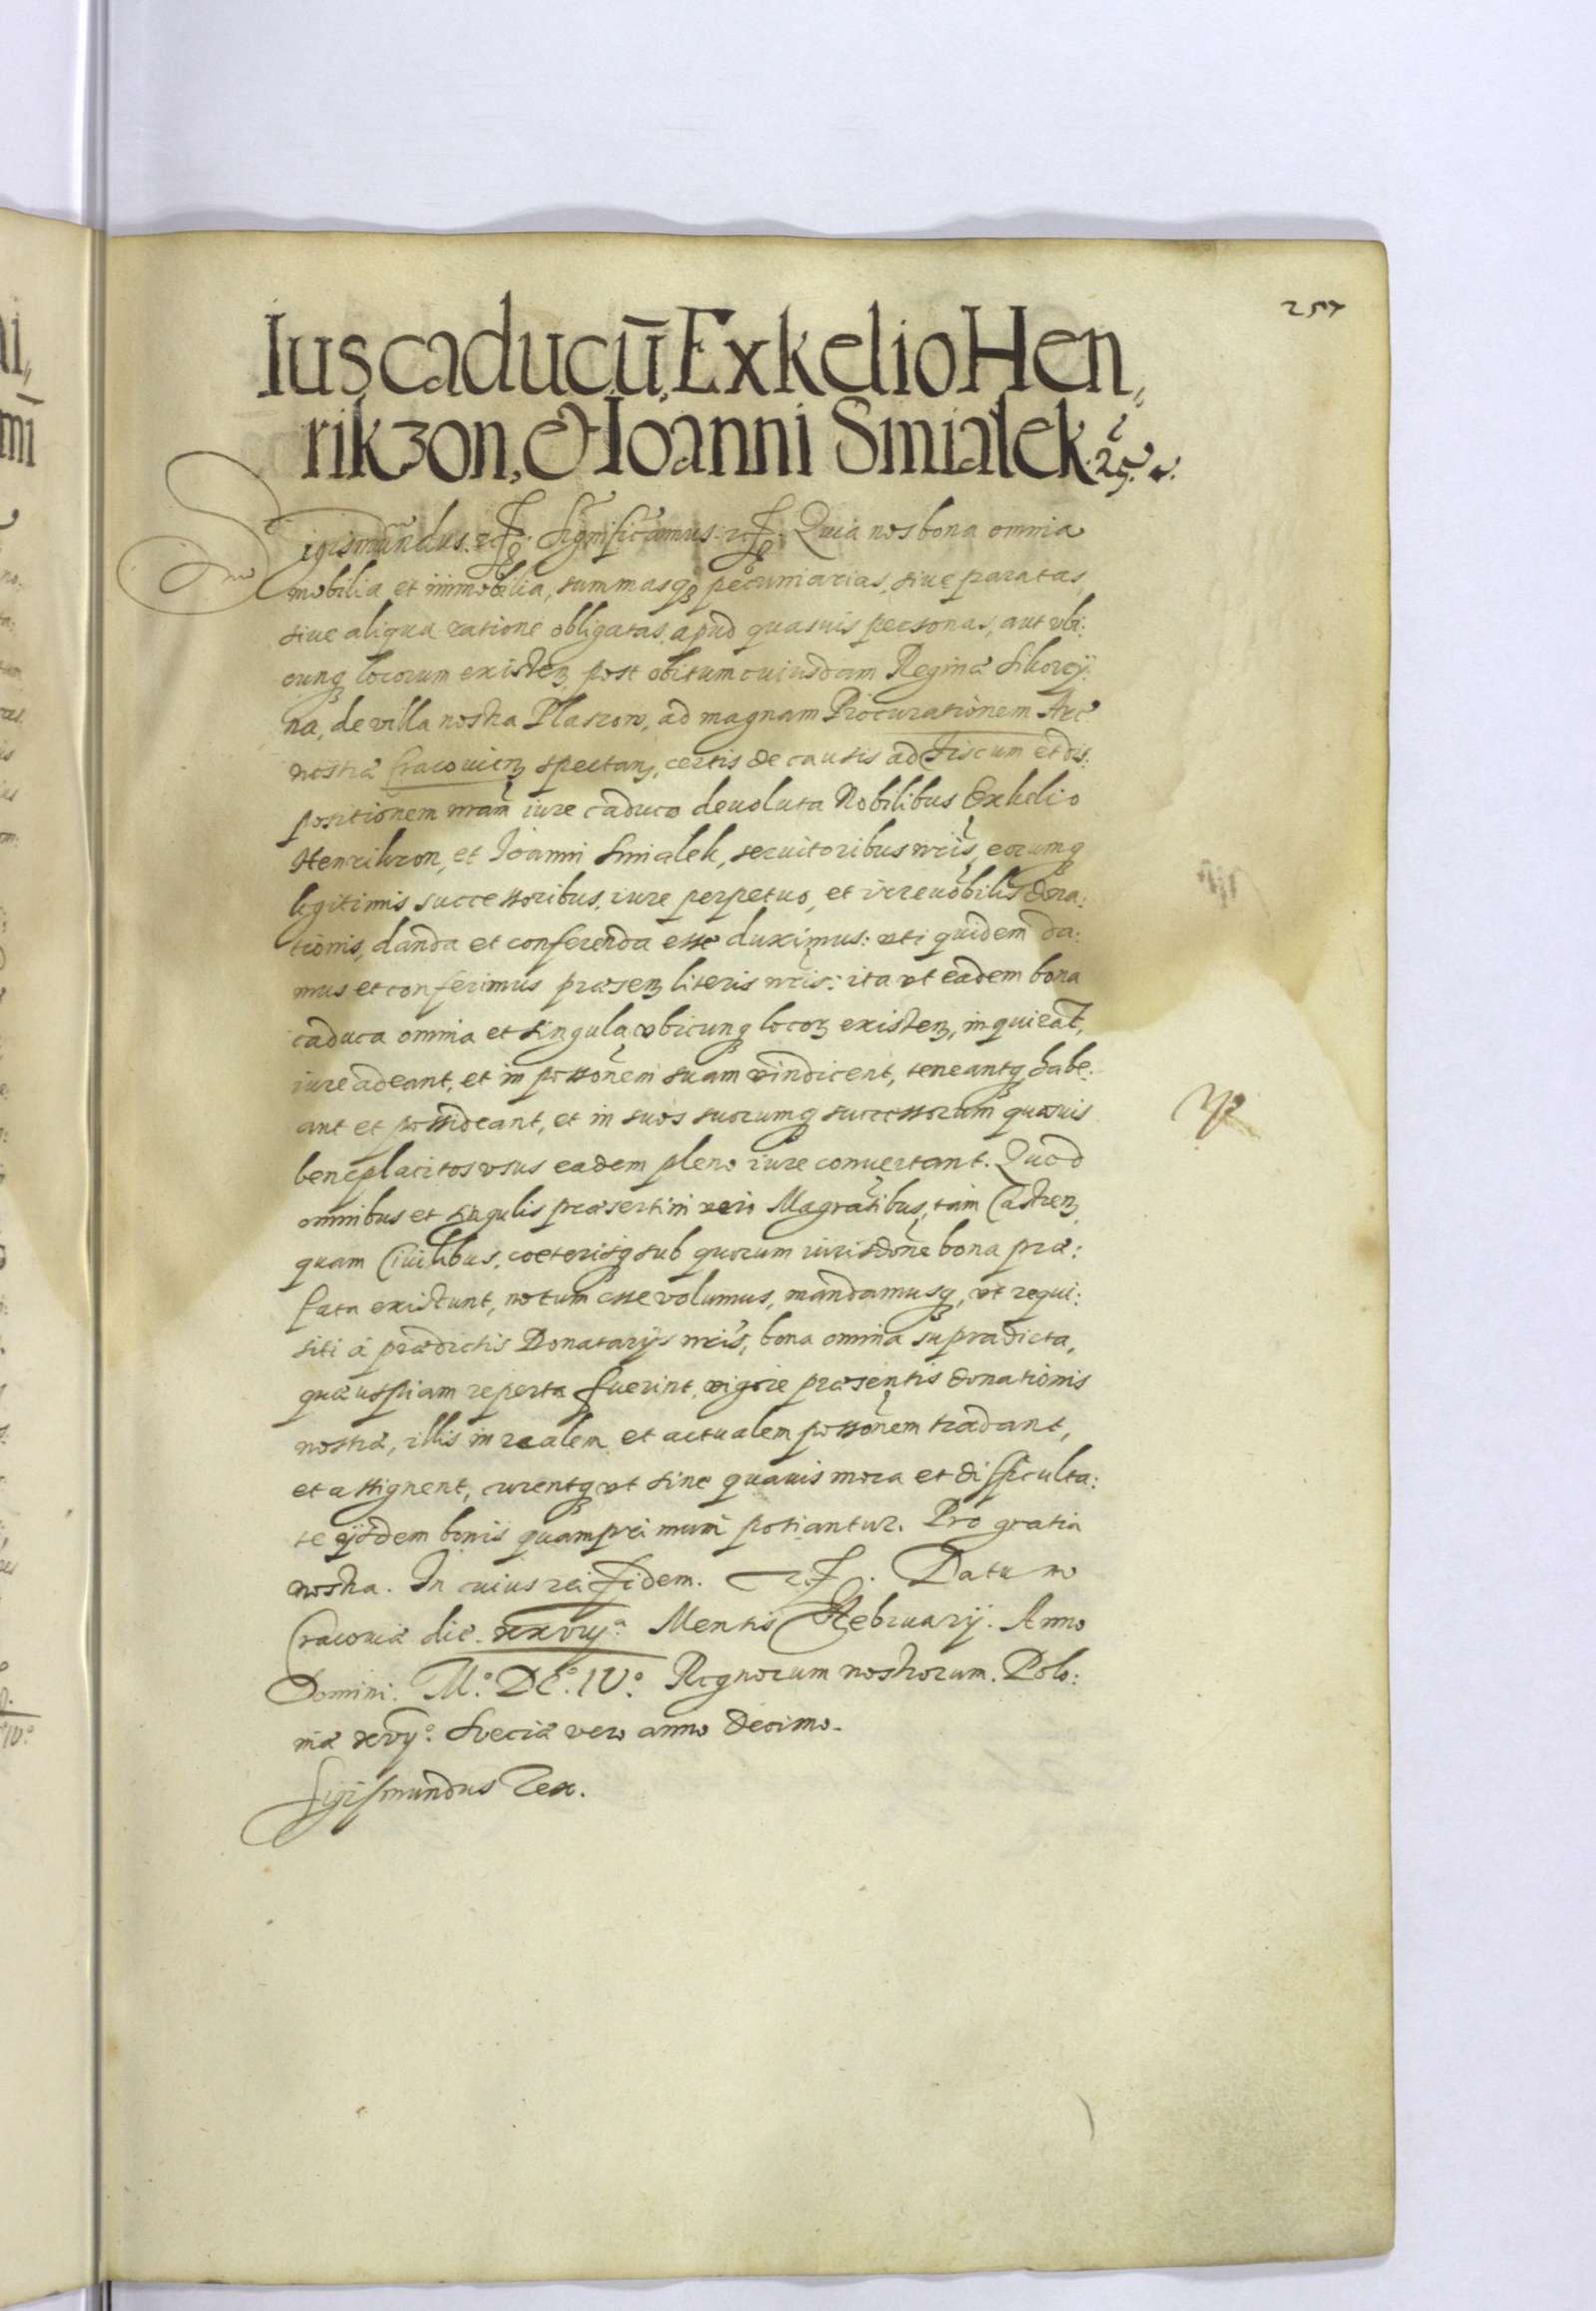 257
Ius caducū, Exkelio Hen,,
rikzon, & Ioanni Smialek
Sigismundus. etc. Significamus. etc. Quia nos bona omnia
mobilia et immobilia, summasq₃ pecuniarias, siue paratas,
siue aliqua ratione obligatas, apud quasuis personas, aut vbi:
cunq₃ locorum existen₃ post obitum cuiusdam Reginæ Sikorcÿ:
na, de villa nostra Plaszow, ad magnam Procurationem Arc̃
nostræ Cracouien₃ spectan₃, certis de causis ad Fiscum et dis:
positionem nr̃am iure caduco deuoluta Nobilibus Exkelio
Henrikzon, et Joanni Smialek, seruitoribus nr̃is, eorumq₃
legitimis successoribus, iure perpetuo, et irreuo͠bilis dona:
tionis, danda et conferenda esse duximus: vti quidem da:
mus et conferimus præsen₃ literis nr̃is: ita vt eadem bona
caduca omnia et singula vbicunq₃ locor₃ existen₃, inquirāt,
iure adeant, et in possõnem suam vindicent, teneantq₃ habe:
ant et possideant, et in suos suorumq₃ successorum quosuis
beneplacitos vsus eadem pleno iure conuertant. Quod
omnibus et singulis præsertim vero Magrãtibus, tam Castren₃
quam Ciuilibus, coeterisq₃ sub quorum iurisdõne bona præ:
fata existunt, notum esse volumus, mandamusq₃, vt requi:
siti à prædictis Donatarijs nr̃is, bona omnia supradicta,
quæ uspiam reperta fuerint, vigore præsentis donationis
nostræ, illis in realem et actualem possõnem tradant,
et assignent, curentq₃ vt sine quauis mora et difficulta:
te ijsdem bonis quamprimum potiantur. Pro gratia
nostra. In cuius rei fidem. etc. Datum
Cracouiæ die. xxvijᵃ. Mensis Februarij. Anno
Domini. M.° DC.° IV.° Regnorum nostrorum. Polo:
niæ xvij.° Sveciæ vero anno decimo.
Sigismundus Rex.